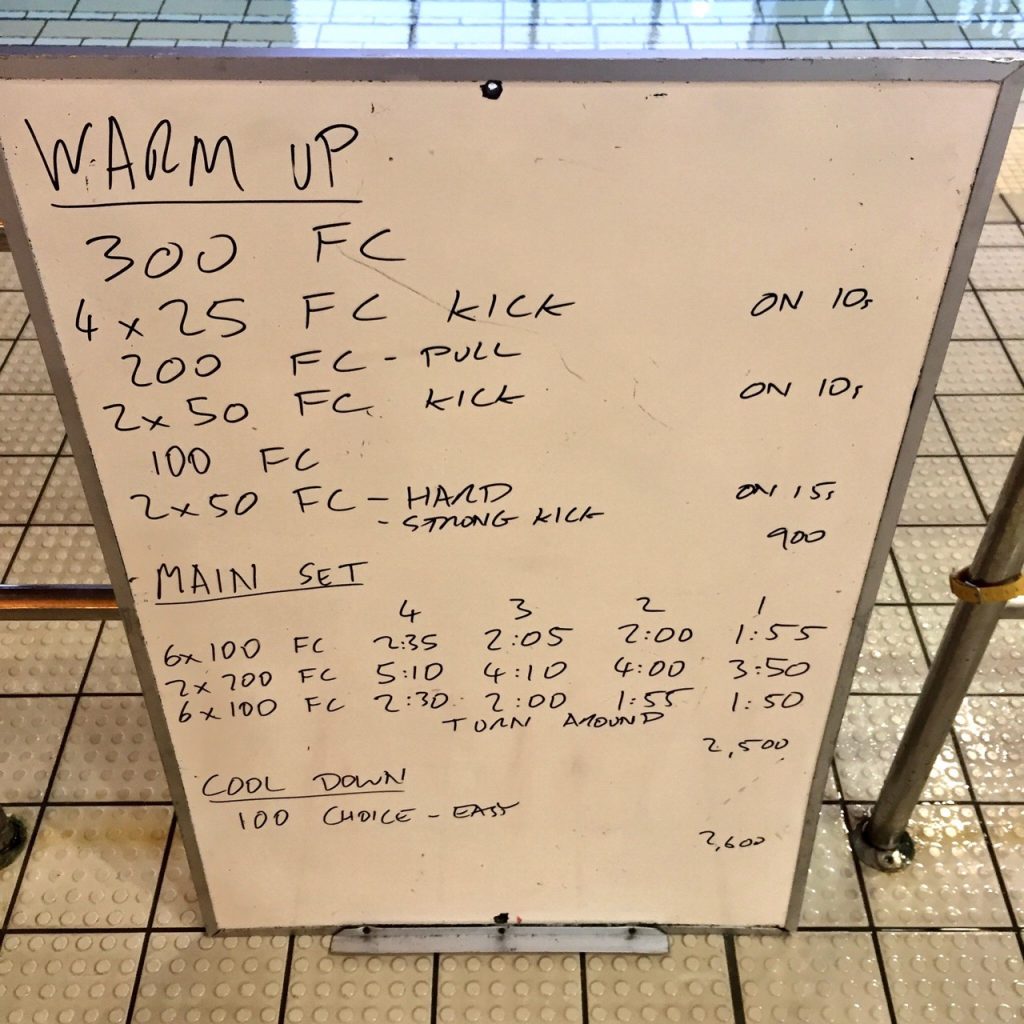 WARM UP
300 FC
4 x 25 FC KICK ON 10s
200 FC - PULL
2 x 50 FC KICK ON 10s
100 FC
2 x 50 FC - HARD ON 15s
- STRONG KICK
900
MAIN SET
4 3 2 1
6 x 100 FC 2:35 2:05 2:00 1:55
2 x 200 FC 5:10 4:10 4:00 3:50
6 x 100 FC 2:30 2:00 1:55 1:50
TURN AROUND
2,500
COOL DOWN
100 CHOICE - EASY
2,600